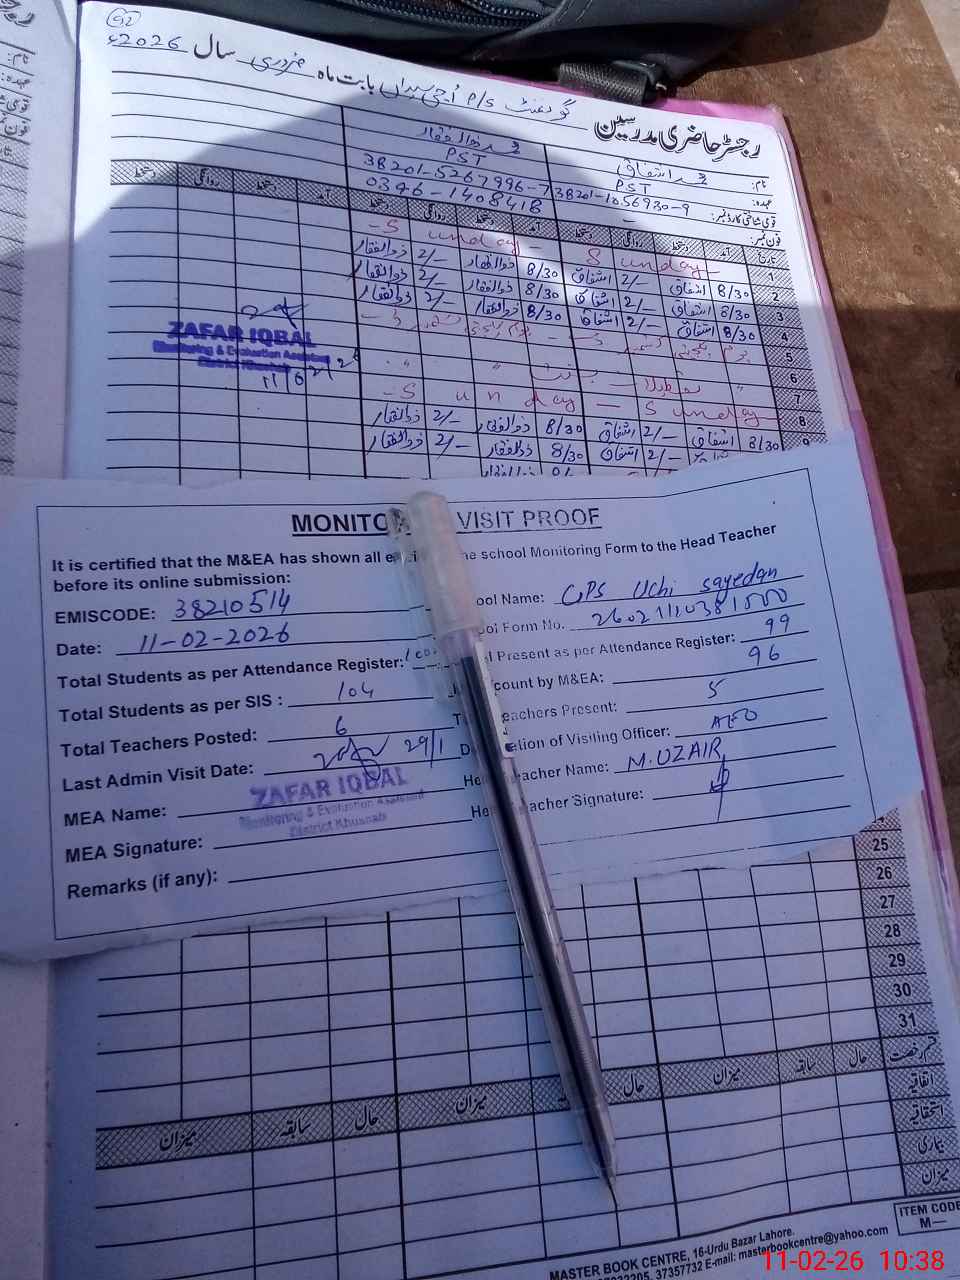 92
رجسٹر حاضری مدرسین گورنمنٹ P/S اُچی سیداں بابت ماہ فروری سال 2026ء
نام: محمد اشفاق محمد ذوالفقار
عہدہ: PST PST
قومی شناختی کارڈ نمبر: 38201-1056930-9 38201-5267996-7
فون نمبر: - 0346-1408418
تاریخ آمد دستخط روانگی دستخط آمد دستخط روانگی دستخط آمد دستخط روانگی دستخط
1 Sunday - Sunday
2 8/30 اشفاق 2/- اشفاق 8/30 ذوالفقار 2/- ذوالفقار
3 8/30 اشفاق 2/- اشفاق 8/30 ذوالفقار 2/- ذوالفقار
4 8/30 اشفاق 2/- اشفاق 8/30 ذوالفقار 2/- ذوالفقار
5 یوم یکجہتی کشمیر
6
7
8 Sunday - Sunday
8/30 اشفاق 2/- اشفاق 8/30 ذوالفقار 2/- ذوالفقار
9 8/30 اشفاق 2/- اشفاق 8/30 ذوالفقار 2/- ذوالفقار
ZAFAR IQBAL
Monitoring & Evaluation Assistant
District Khushab
11/02/26
MONITO VISIT PROOF
It is certified that the M&EA has shown all e school Monitoring Form to the Head Teacher
before its online submission:
EMISCODE: 38210514 ool Name: GPS Uchi sayedan
Date: 11-02-2026 ool Form No. 26021110381500
Total Students as per Attendance Register: l Present as per Attendance Register: 99
Total Students as per SIS : 104 count by M&EA: 96
Total Teachers Posted: 6 eachers Present: 5
Last Admin Visit Date: 29/1 De tion of Visiting Officer: AEO
MEA Name: ZAFAR IQBAL He Teacher Name: M.UZAIR
Monitoring & Evaluation Assistant
District Khushab
MEA Signature: He Teacher Signature:
Remarks (if any):
25
26
27
28
29
30
31
قسم رخصت حال سابقہ میزان حال میزان حال سابقہ میزان
اتفاقیہ
استحقاقیہ
بیماری
میزان
ITEM CODE
M—
MASTER BOOK CENTRE, 16-Urdu Bazar Lahore.
37357732 E-mail: masterbookcentre@yahoo.com
11-02-26 10:38